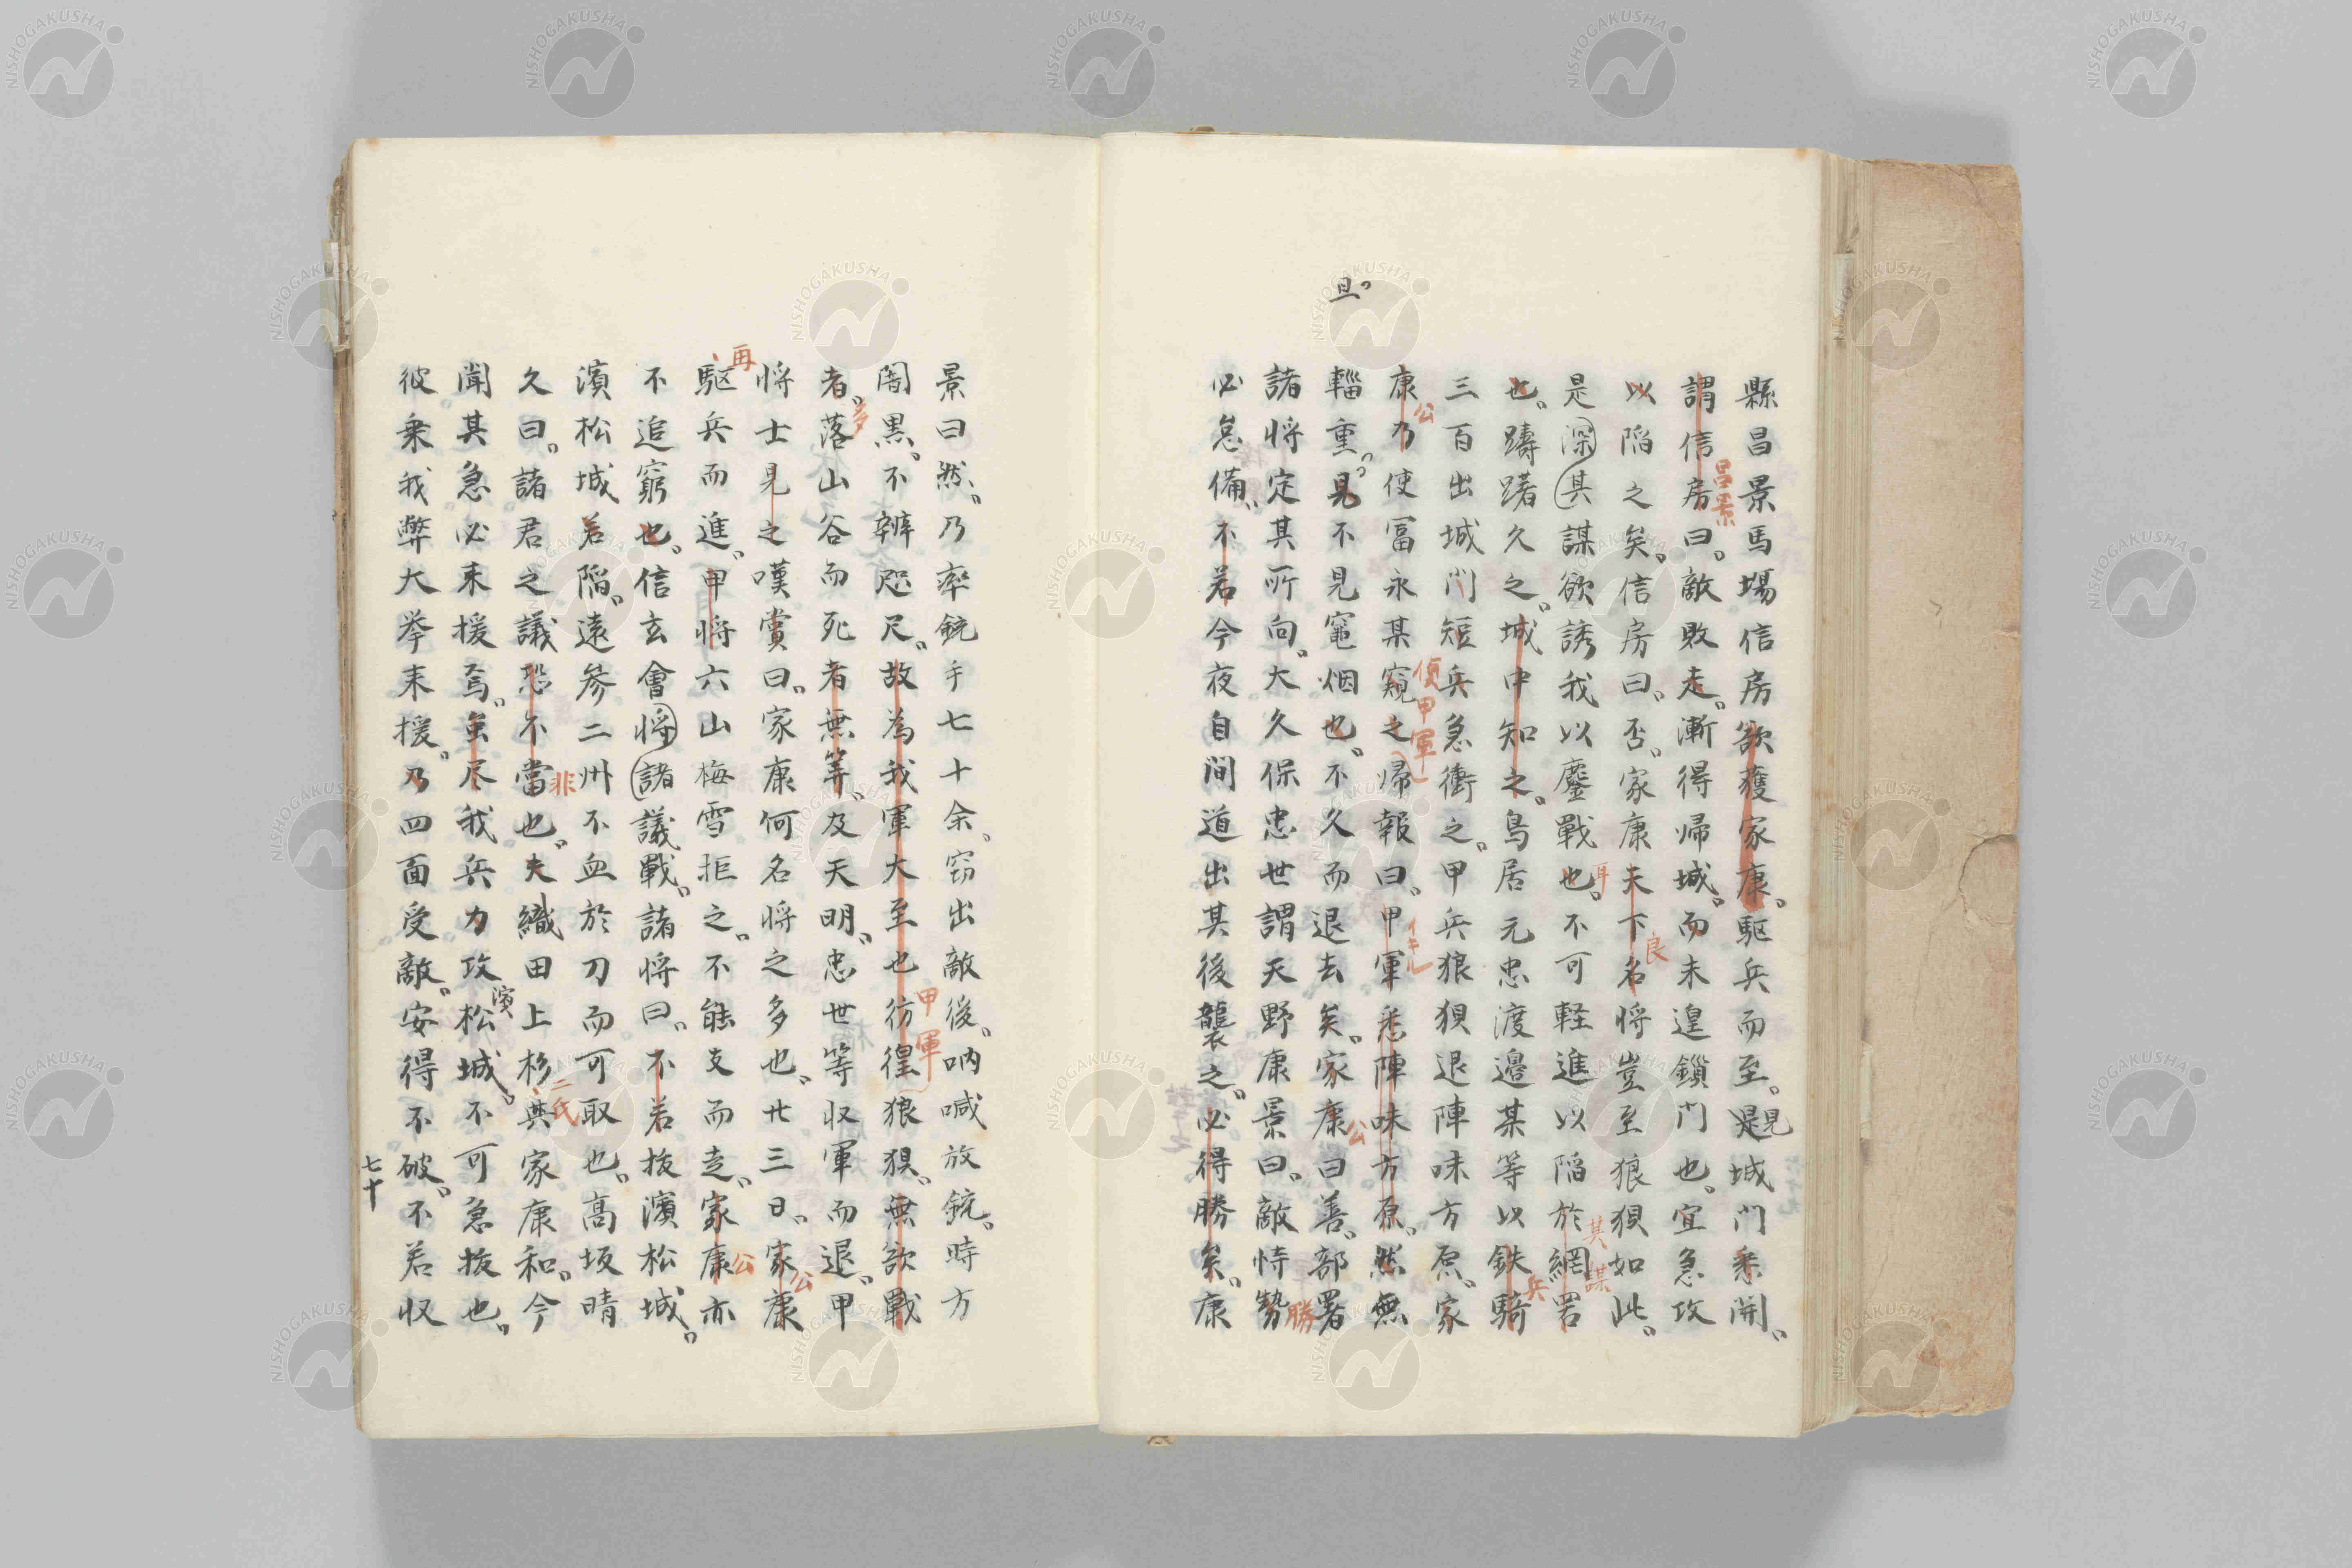 縣昌景馬場信房欲獲家康。駆兵而至。是見城門悉開。
謂信房曰。敵敗走。漸得帰城。而未遑鎖門也。宜急攻
昌景
以陥之矣。信房曰。否。家康夫下名将豈至狼狽如此。
良
是深其謀欲誘我以鏖戰也。不可軽進以陥於網罟
耳
其謀
也。躊躇久之。城中知之。鳥居元忠渡邉某等以鉄騎
兵
三百出城門短兵急衝之。甲兵狼狽退陣味方原。家
康乃使冨永某窺之帰報曰。甲軍悉陣味方原。然無
公
偵甲軍
イキル
旦
輜重。見不見竃烟也。不久而退去矣。家康曰善。部署
公
諸将定其所向。大久保忠世謂天野康景曰。敵恃勢
勝
必怠備。不若今夜自間道出其後襲之。必得勝矣。康
景曰然。乃率銃手七十余。窃出敵後。吶喊放銃。時方
闇黒。不辨咫尺。故為我軍大至也彷徨狼狽。無欲戰
甲軍
者。落山谷而死者無筭。及天明。忠世等収軍而退。甲
多
将士見之嘆賞曰。家康何名将之多也。廿三日。家康
公
駆兵而進。甲将六山梅雪拒之。不能支而走。家康亦
再
公
不追窮也。信玄會将諸議戰。諸将曰。不若抜濱松城。
濱松城若陥。遠参二州不血於刀而可取也。高坂晴
久曰。諸君之議恐不當也。夫織田上杉與家康和。今
非
二氏
聞其急必来援焉。虽尽我兵力攻松城。不可急抜也。
濱
彼乗我弊大挙来援。乃四面受敵。安得不破。不若収
七十
NISHOGAKUSHA